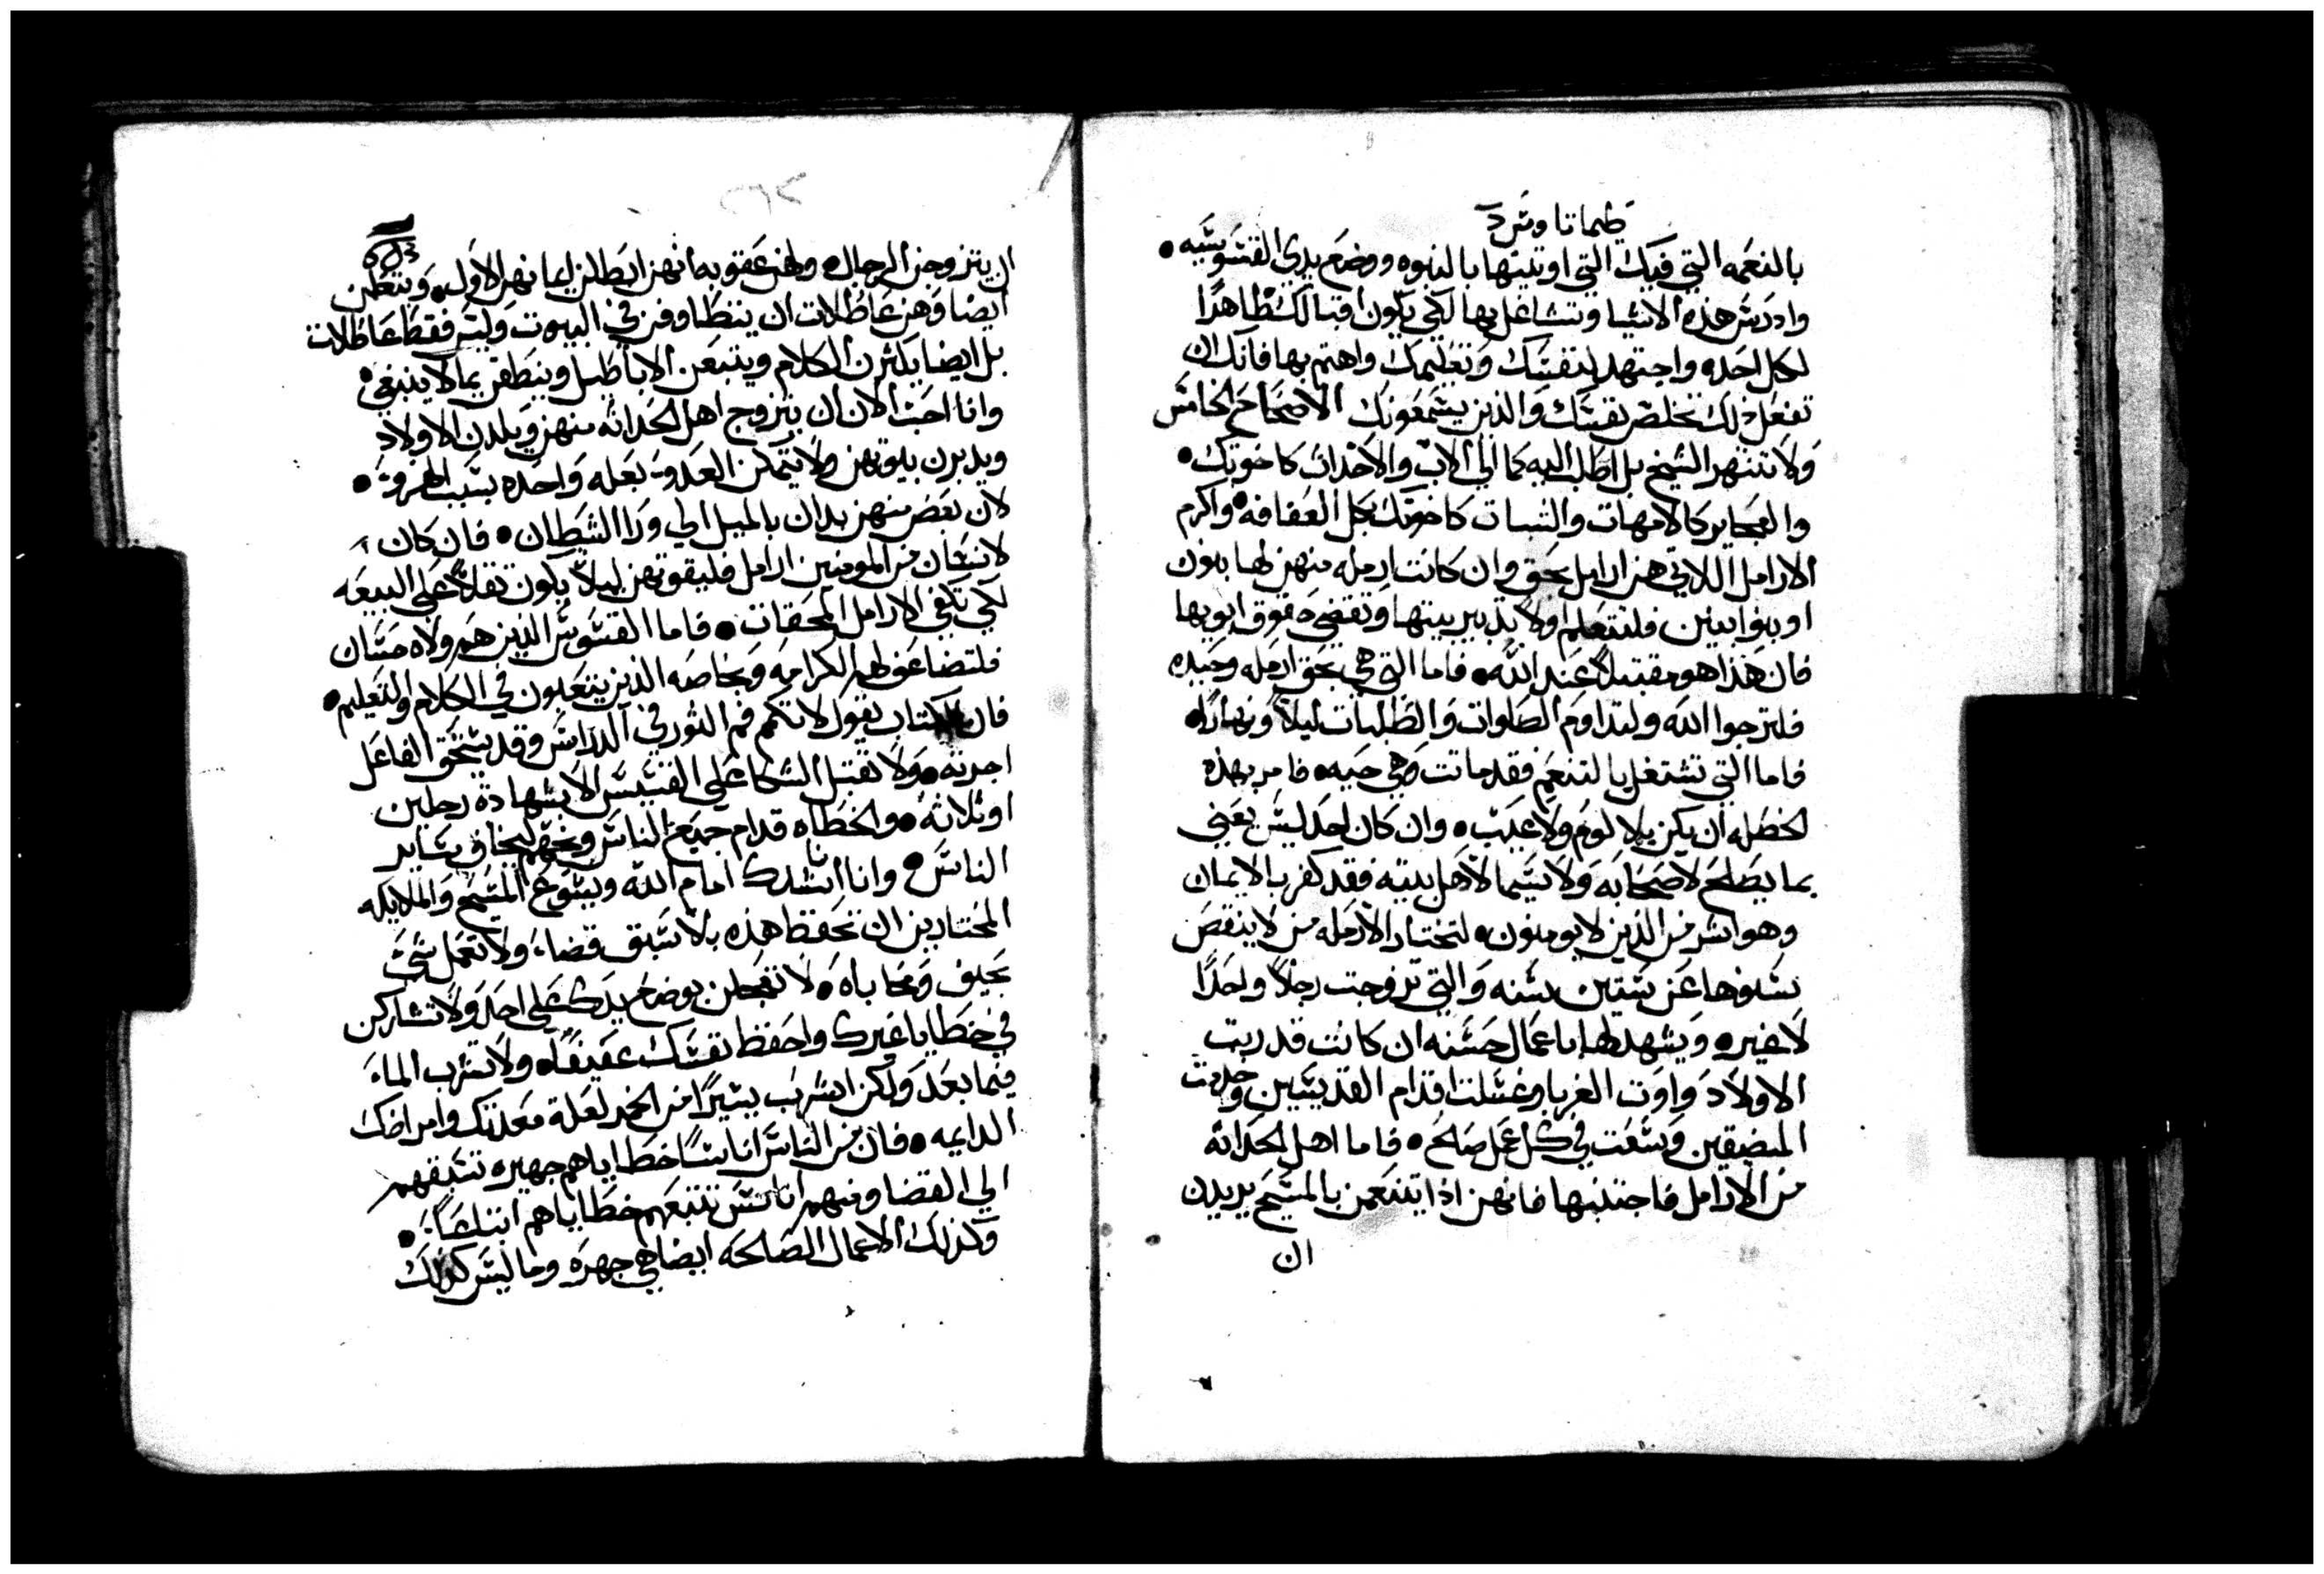 طيماتاوس د
بالنعمه التي فيك التي اوتيتها بالنبوه ووضع يدي القسوسيه •
وادرس هذه الاشيا وتشاغل بها لكي يكون اقبالك ظاهرًا
لكل احد واجتهد لنفسك وتعليمك واهتم بها فانك ان
تفعل ذلك تخلص نفسك والذين يسمعونك الاصحاح الخامس
ولا تنتهر الشيخ بل اطلب اليه كما الي الاب والاحداث كاخوتك •
والعجايز كالامهات والشبات كاخوتك بكل العفافه • واكرم
الارامل اللاتي هن ارامل بحق وان كانت ارمله منهن لها بنون
او بنوا بنين فلتتعلم اولًا تدبير بيتها وتقضي حقوق ابويها
فان هذا هو مقتبلًا عند الله • فاما التي هي بحق ارمله وحيده
فلترجوا الله ولتداوم الصلوات والطلبات ليلًا ونهارًا •
فاما التي تشتغل بالتنعم فقد ماتت وهي حيه • فامر بهذه
الخصله ان يكن بلا لوم ولا عيب • وان كان احد ليس يعني
بما يصلح لاصحابه ولا سيما لاهل بيته فقد كفر بالايمان
وهو اشر من الذين لا يومنون • لتختار الارمله من لا ينقص
سنوها عن ستين سنه والتي تزوجت رجلًا واحدًا
لا غير • ويشهد لها باعمال حسنه ان كانت قد ربت
الاولاد واوت الغربا وغسلت اقدام القديسين وخدمت
المضيقين وسعت في كل عمل صالح • فاما اهل الحداثه
من الارامل فاجتنبها فانهن اذا يتنعمن بالمسيح يريدن
ان
ان يتزوجن الرجال • ولهن عقوبه انهن ابطلن ايمانهن الاول • ويتعلمن
ايضا وهن عاطلات ان يتطاوفن في البيوت وليس فقط عاطلات
بل ايضا يكثرن الكلام ويتبعن الاباطيل وينطقن بما لا ينبغي •
وانا احب الان ان يتزوج اهل الحداثه منهن ويلدن الاولاد
ويدبرن بيوتهن ولا يمكن العدو بعله واحده بسبب •
لان بعض منهن بدان بالميل الي ورا الشيطان • فان كان
لانسان من المومنين ارامل فليقوتهن ليلًا يكون ثقلًا علي البيعه
لكي تكفي الارامل المحقات • فاما القسوس الذين هم ولاه حسان
فلتضاعف لهم الكرامه وبخاصه الذين يتعبون في الكلام والتعليم •
فان الكتاب يقول لا تكم فم الثور في الدراس وقد يستحق الفاعل
اجرته • ولا تقتبل الشكا علي القسيس الا بشهادة رجلين
او ثلاثة • والخطاه قدام جميع الناس وبخهم ليخاف ساير
الناس • وانا انشدك امام الله ويسوع المسيح والملايكه
المختارين ان تحفظ هذه بلا سبق قضا، ولا تعمل شي
بحيف ومحاباه • لا تعجلن بوضع يدك علي احد ولا تشاركن
في خطايا غيرك واحفظ نفسك عفيفًا • ولا تشرب الماء
فيما بعد ولكن اشرب يسيرًا من الخمر لعلة معدتك وامراضك
الدايمه • فان من الناس اناسًا خطاياهم جهيره تسبقهم
الي القضا ومنهم اناس تتبعهم خطاياهم اتباعًا •
وكذلك الاعمال الصالحه ايضا هي جهره وما ليس كذلك